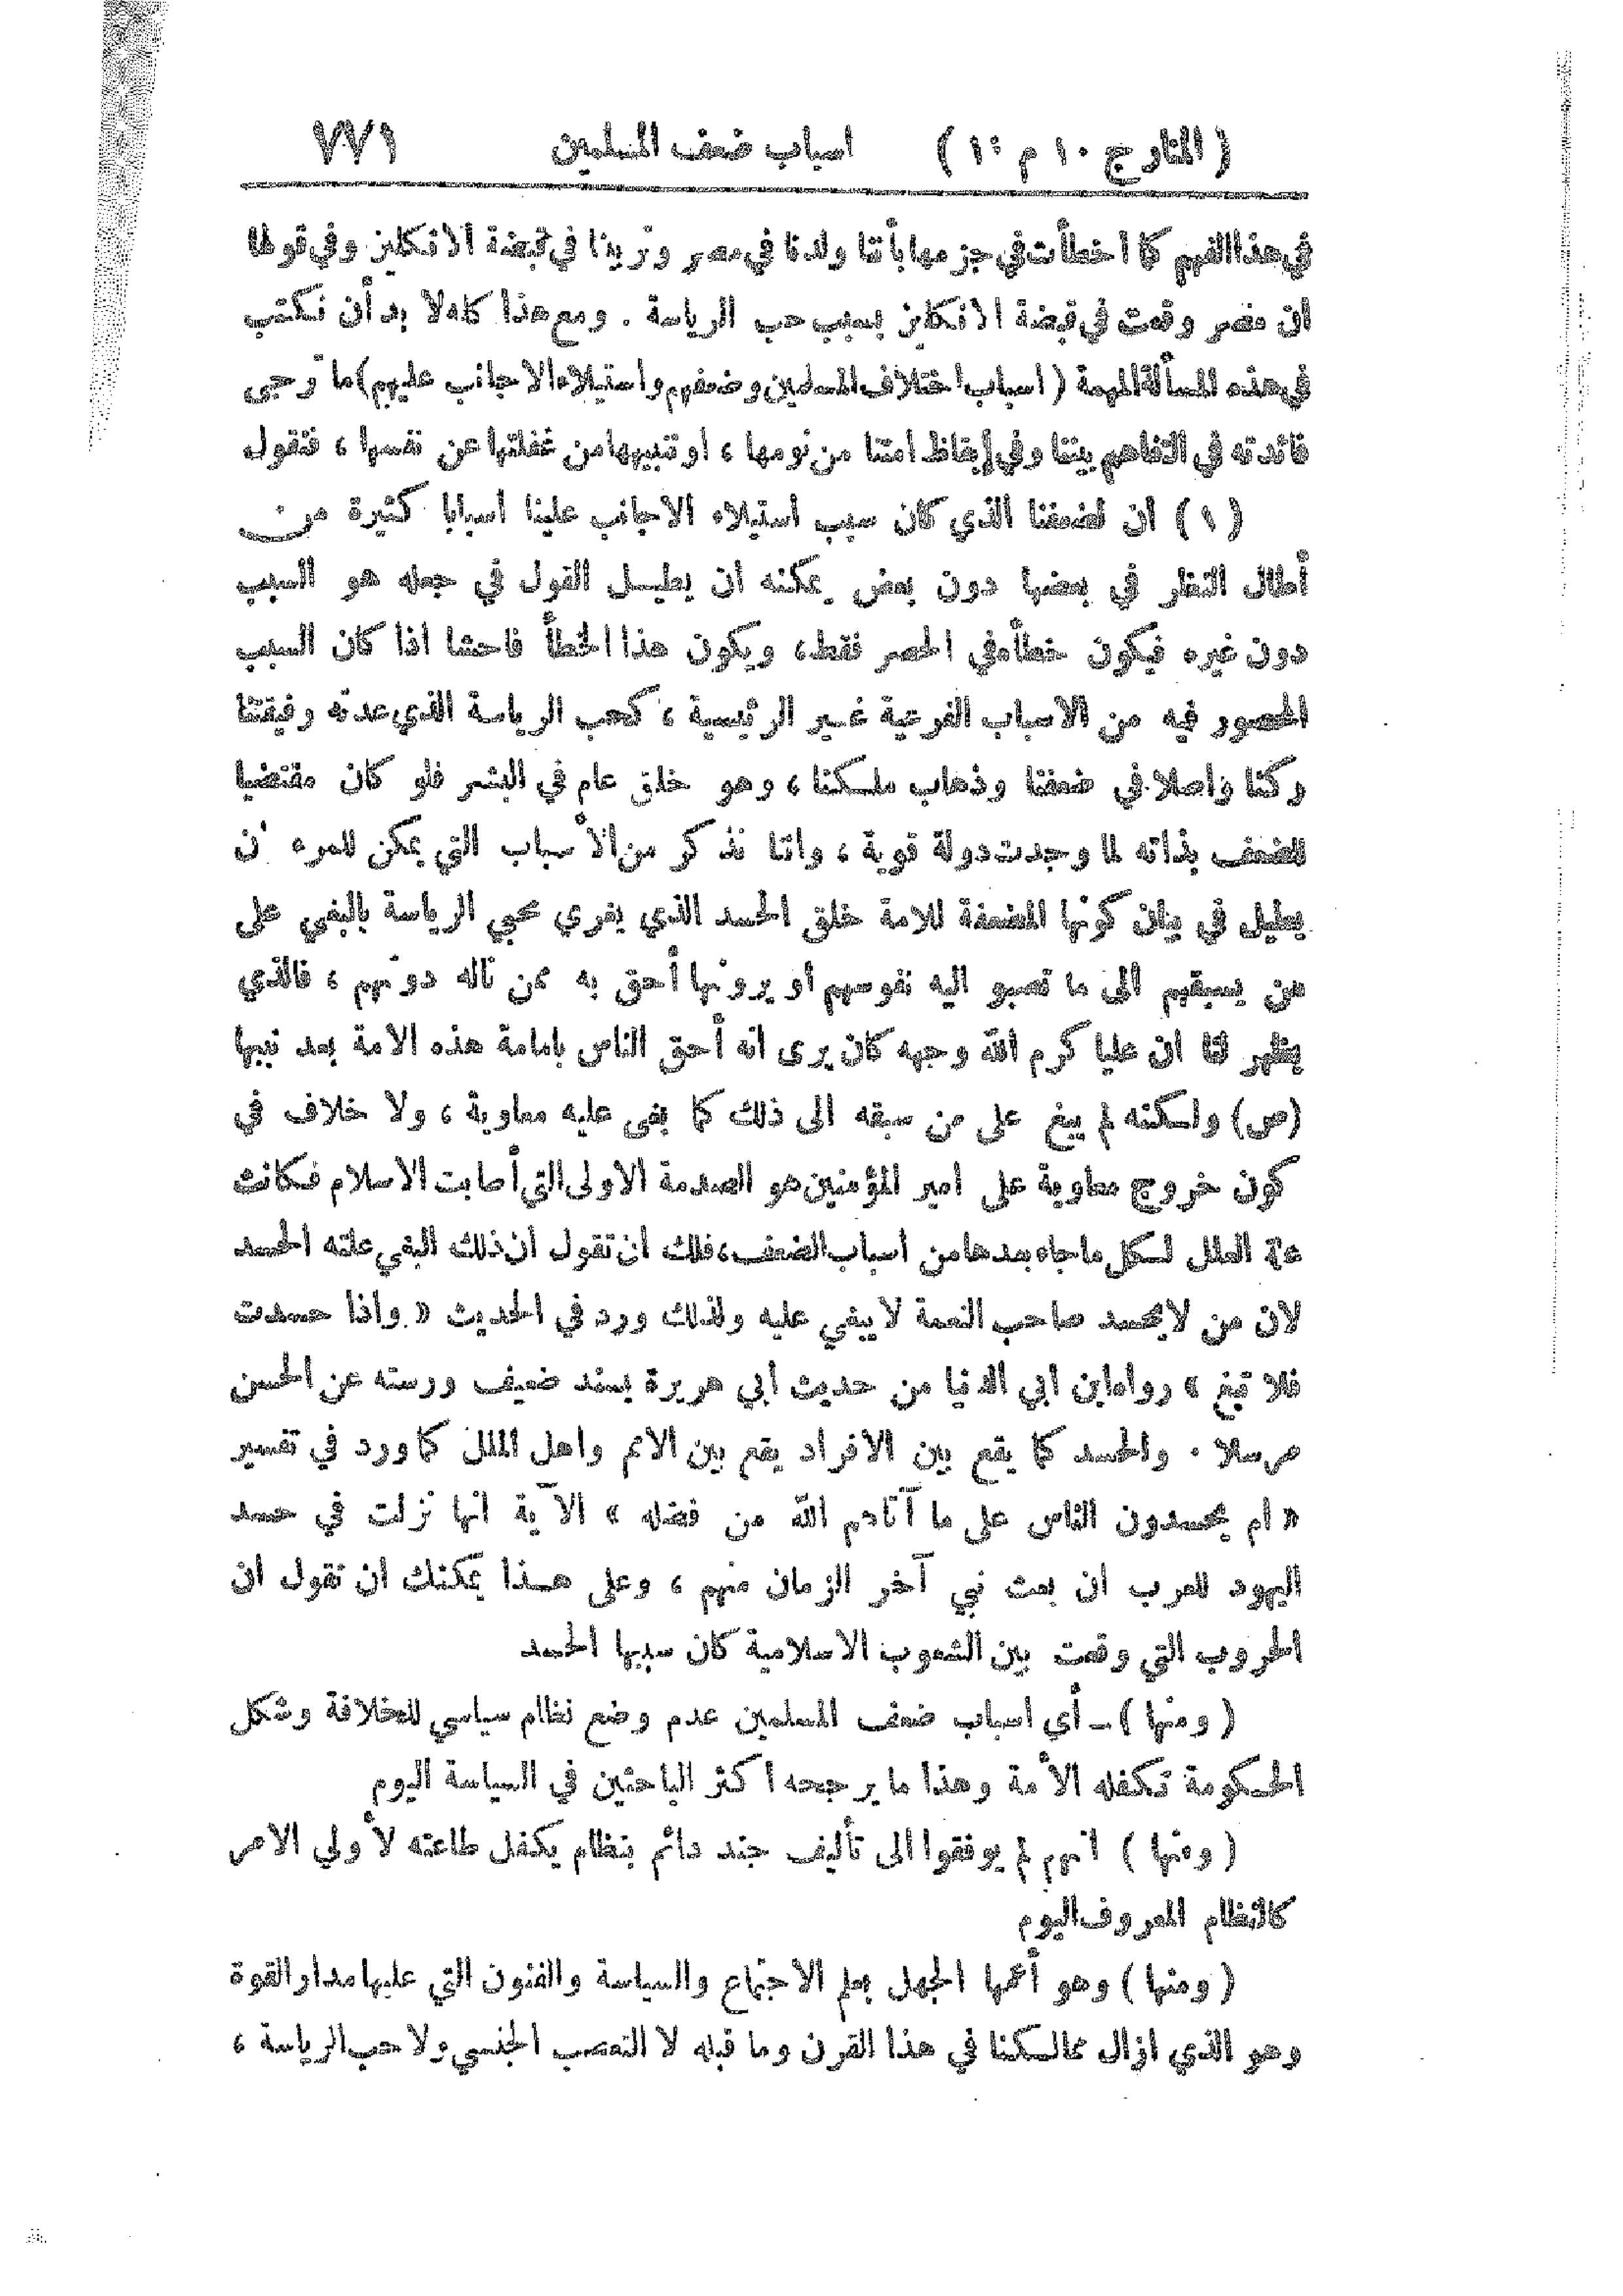 (المنار ج ١٠ م ١٠) اسباب ضعف المسلمين ٧٧١
في هذا الفهم كما اخطأت في جزمها بأننا ولدنا في مصر وتربينا في قبضة الانكليز وفي قولها
ان مصر وقعت في قبضة الانكليز بسبب حب الرياسة . ومع هذا كله لا بد أن نكتب
في هذه المسألة المهمة ( اسباب اختلاف المسلمين وضعفهم واستيلاء الاجانب عليهم) ما ترجى
فائدته في التفاهم بيننا وفي إيقاظ امتنا من نومها ، او تنبيهها من غفلتها عن نفسها ، فنقول
( ١ ) ان لضعفنا الذي كان سبب استيلاء الاجانب علينا اسبابا كثيرة من
أطال النظر في بعضها دون بعض يمكنه ان يطيل القول في جعله هو السبب
دون غيره فيكون خطأه في الحصر فقط، ويكون هذا الخطأ فاحشا اذا كان السبب
المحصور فيه من الاسباب الفرعية غير الرئيسية ، كحب الرياسة الذي عدته رفيقتنا
ركنا واصلا في ضعفنا وذهاب ملكنا ، وهو خلق عام في البشر فلو كان مقتضيا
للضعف بذاته لما وجدت دولة قوية ، واننا نذكر من الأسباب التي يمكن للمرء ان
يطيل في بيان كونها المضعفة للامة خلق الحسد الذي يغري محبي الرياسة بالبغي على
من يسبقهم الى ما تصبو اليه نفوسهم أو يرونها أحق به ممن ناله دونهم ، فالذي
يظهر لنا ان عليا كرم الله وجهه كان يرى انه أحق الناس بامامة هذه الامة بعد نبيها
(ص) ولكنه لم يبغ على من سبقه الى ذلك كما بغى عليه معاوية ، ولا خلاف في
كون خروج معاوية على امير المؤمنين هو الصدمة الاولى التي أصابت الاسلام فكانت
علة العلل لكل ما جاء بعدها من أسباب الضعف، فلك ان تقول ان ذلك البغي علته الحسد
لان من لا يحسد صاحب النعمة لا يبغي عليه ولذلك ورد في الحديث « واذا حسدت
فلا تبغ » رواه ابن ابي الدنيا من حديث أبي هريرة بسند ضعيف ورسته عن الحسن
مرسلا . والحسد كما يقع بين الافراد يقع بين الامم واهل الملل كما ورد في تفسير
« ام يحسدون الناس على ما آتاهم الله من فضله » الآية انها نزلت في حسد
اليهود للعرب ان بعث نبي آخر الزمان منهم ، وعلى هذا يمكنك ان تقول ان
الحروب التي وقعت بين الشعوب الاسلامية كان سببها الحسد
( ومنها ) – أي اسباب ضعف المسلمين عدم وضع نظام سياسي للخلافة وشكل
الحكومة تكفله الأمة وهذا ما يرجحه أكثر الباحثين في السياسة اليوم
( ومنها ) انهم لم يوفقوا الى تأليف جند دائم بنظام يكفل طاعته لأولي الامر
كالنظام المعروف اليوم
( ومنها ) وهو أعمها الجهل بعلم الاجتماع والسياسة والفنون التي عليها مدار القوة
وهو الذي ازال ممالكنا في هذا القرن وما قبله لا التعصب الجنسي ولا حب الرياسة ،